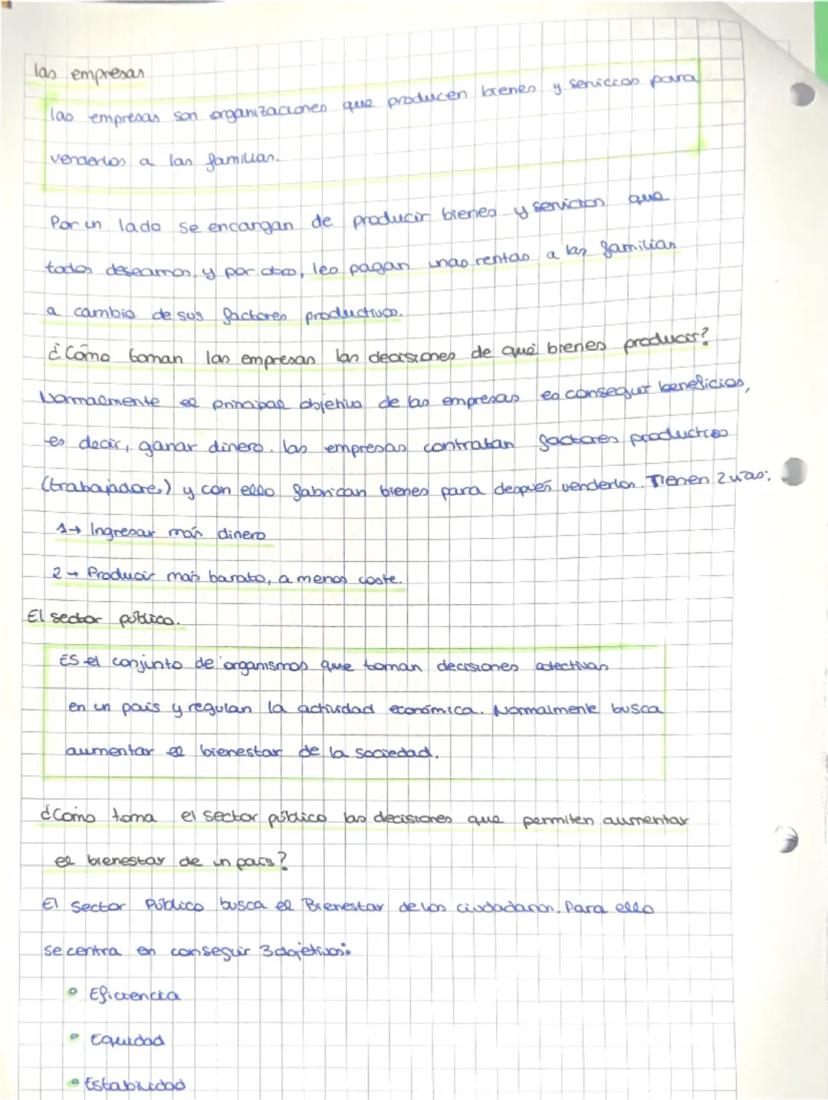 las empresas
las empresas son organizaciones que producen bienes y servicios para
venderlos a las familias.
Por un lado se encargan de producir bienes y servicios que
todos deseamos, y por otro, les pagan unas rentas a las familias
a cambio de sus factores productivos.
¿Cómo toman las empresas las decisiones de qué bienes producir?
Normalmente el principal objetivo de las empresas es conseguir beneficios,
es decir, ganar dinero. las empresas contratan factores productivos
(trabajadores) y con ello fabrican bienes para después venderlos. Tienen 2 vías:
1→ Ingresar más dinero
2→ Producir más barato, a menos coste.
El sector público.
ES el conjunto de organismos que toman decisiones colectivas
en un país y regulan la actividad económica. Normalmente busca
aumentar el bienestar de la sociedad.
¿Cómo toma el sector público las decisiones que permiten aumentar
el bienestar de un país?
El Sector Público busca el Bienestar de los ciudadanos. Para ello
se centra en conseguir 3 objetivos:
• Eficiencia
• Equidad
• Estabilidad